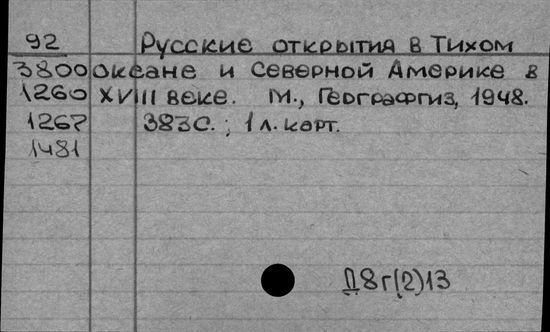 92 Русские открытия в Тихом
3800 океане и Северной Америке в
1260 XVIII веке. М., Географгиз, 1948.
1267 383с.; 1 л. карт.
1481
Д8г(2)13